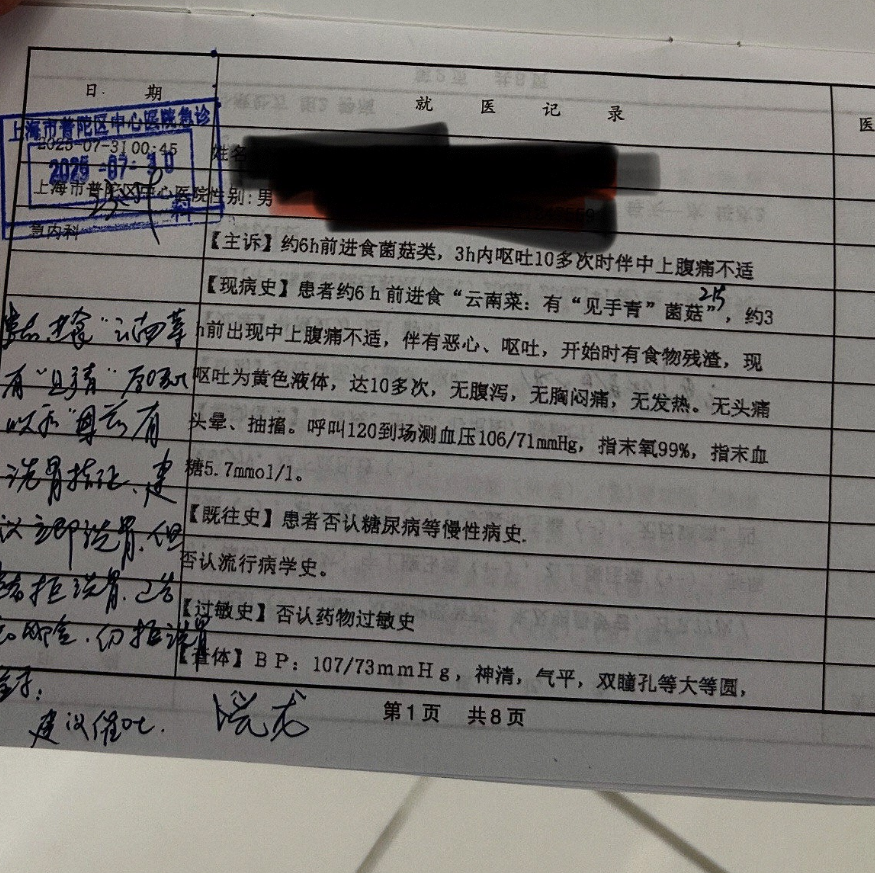 日 期 就 医 记 录 医
上海市普陀区中心医院急诊
2025-07-31 00:45
姓名
上海市普陀区中心医院 性别: 男
科
急内科
【主诉】约6h前进食菌菇类, 3h内呕吐10多次时伴中上腹痛不适
【现病史】患者约6h前进食“云南菜: 有“见手青”菌菇”, 约3
h前出现中上腹痛不适, 伴有恶心、呕吐, 开始时有食物残渣, 现
呕吐为黄色液体, 达10多次, 无腹泻, 无胸闷痛, 无发热。无头痛
头晕、抽搐。呼叫120到场测血压106/71mmHg, 指末氧99%, 指末血
糖5.7mmol/l。
【既往史】患者否认糖尿病等慢性病史.
否认流行病学史。
【过敏史】否认药物过敏史
【查体】BP: 107/73mmHg, 神清, 气平, 双瞳孔等大等圆,
第1页 共8页
"云南菜
有"见手青"
有
洗胃指征, 建
议立即洗胃, 但
拒洗胃
仍拒洗胃
签字:
建议催吐.